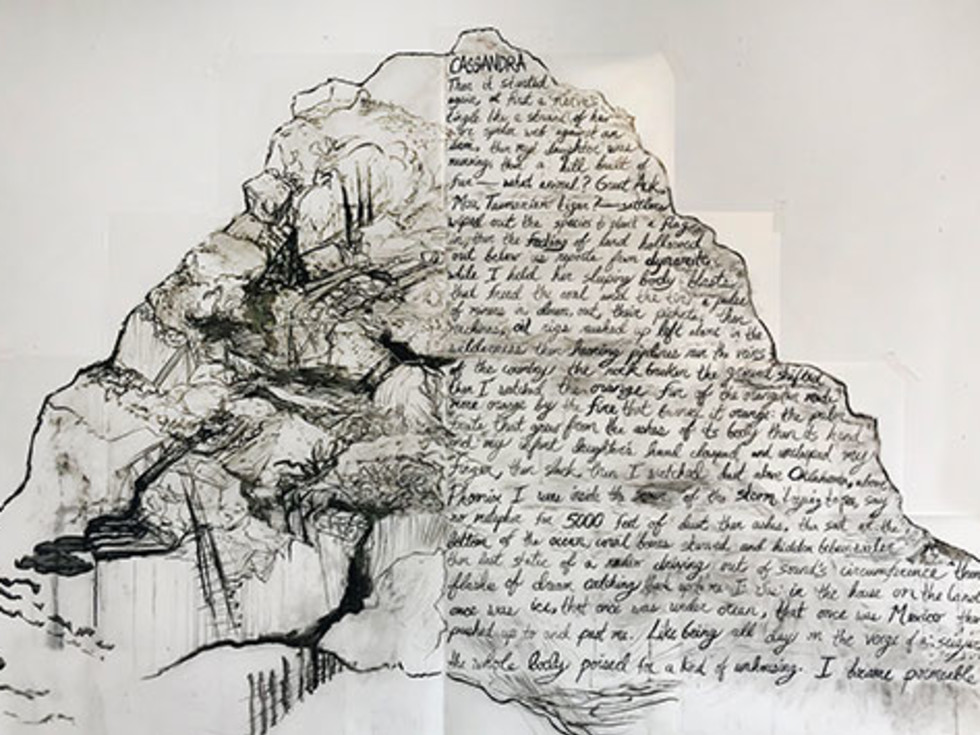 CASSANDRA
Then it started
again, at first a nerve's
tingle like a strand of hair
or spider web against an
arm, then my daughter was
running than a hill built of
fur — what animal? Great Auk
Moa, Tasmanian tiger? — settlers
wiped out the species to plant a flag
in, then the feeling of land hollowed
out below us reports from dynamite
while I held her sleeping body blasts
that freed the coal and the tin, a pulse
of miners in down, out, their pickets, then
machines, oil rigs rushed up left alone in the
wilderness then humming pipelines ran the veins
of the country the rock broken the ground shifted
then I watched the orange fur of the orangutan made
more orange by the fire that burned it orange: the palm
fruits that grew from the ashes of its body then its hand
and my infant daughter's hand clasped and unclasped my
finger, then slack, then I watched but above Oklahoma, above
Promise I was inside the of the storm trying to say
no metaphor for 5000 feet of dust then ashes, the salt at the
bottom of the ocean, coral bones skewed and hidden
then last static of a radio driving out of sound's circumference then
flashes of dream catching up to me I in the house on the land
once was ice, that once was under ocean, that once was Mexico
pushed up to and past me. Like being all day on the verge of a
the whole body poised for a kind of unhousing. I became permeable